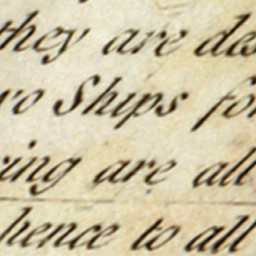 they are des
wo Ships for
ring are all
hence to all